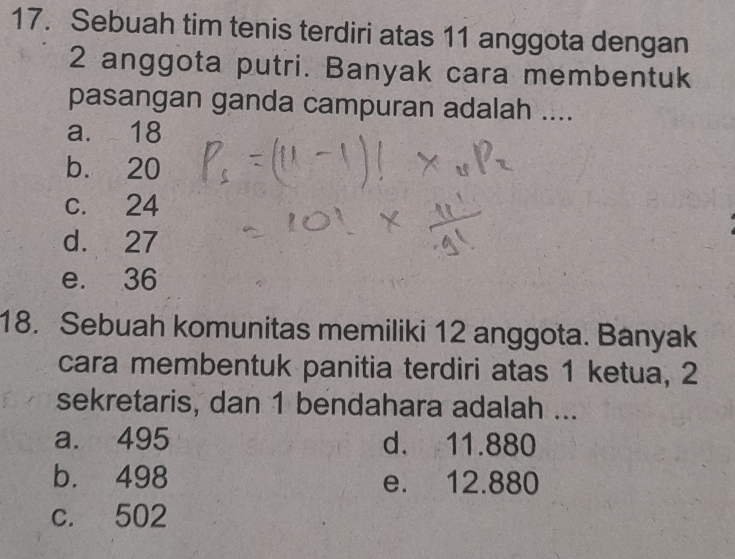 17. Sebuah tim tenis terdiri atas 11 anggota dengan
2 anggota putri. Banyak cara membentuk
pasangan ganda campuran adalah ....
a. 18
b. 20
c. 24
d. 27
e. 36
P₅ = (11 - 1)! × ₁₁P₂
= 10! × 11! / 9!
18. Sebuah komunitas memiliki 12 anggota. Banyak
cara membentuk panitia terdiri atas 1 ketua, 2
sekretaris, dan 1 bendahara adalah ...
a. 495
b. 498
c. 502
d. 11.880
e. 12.880